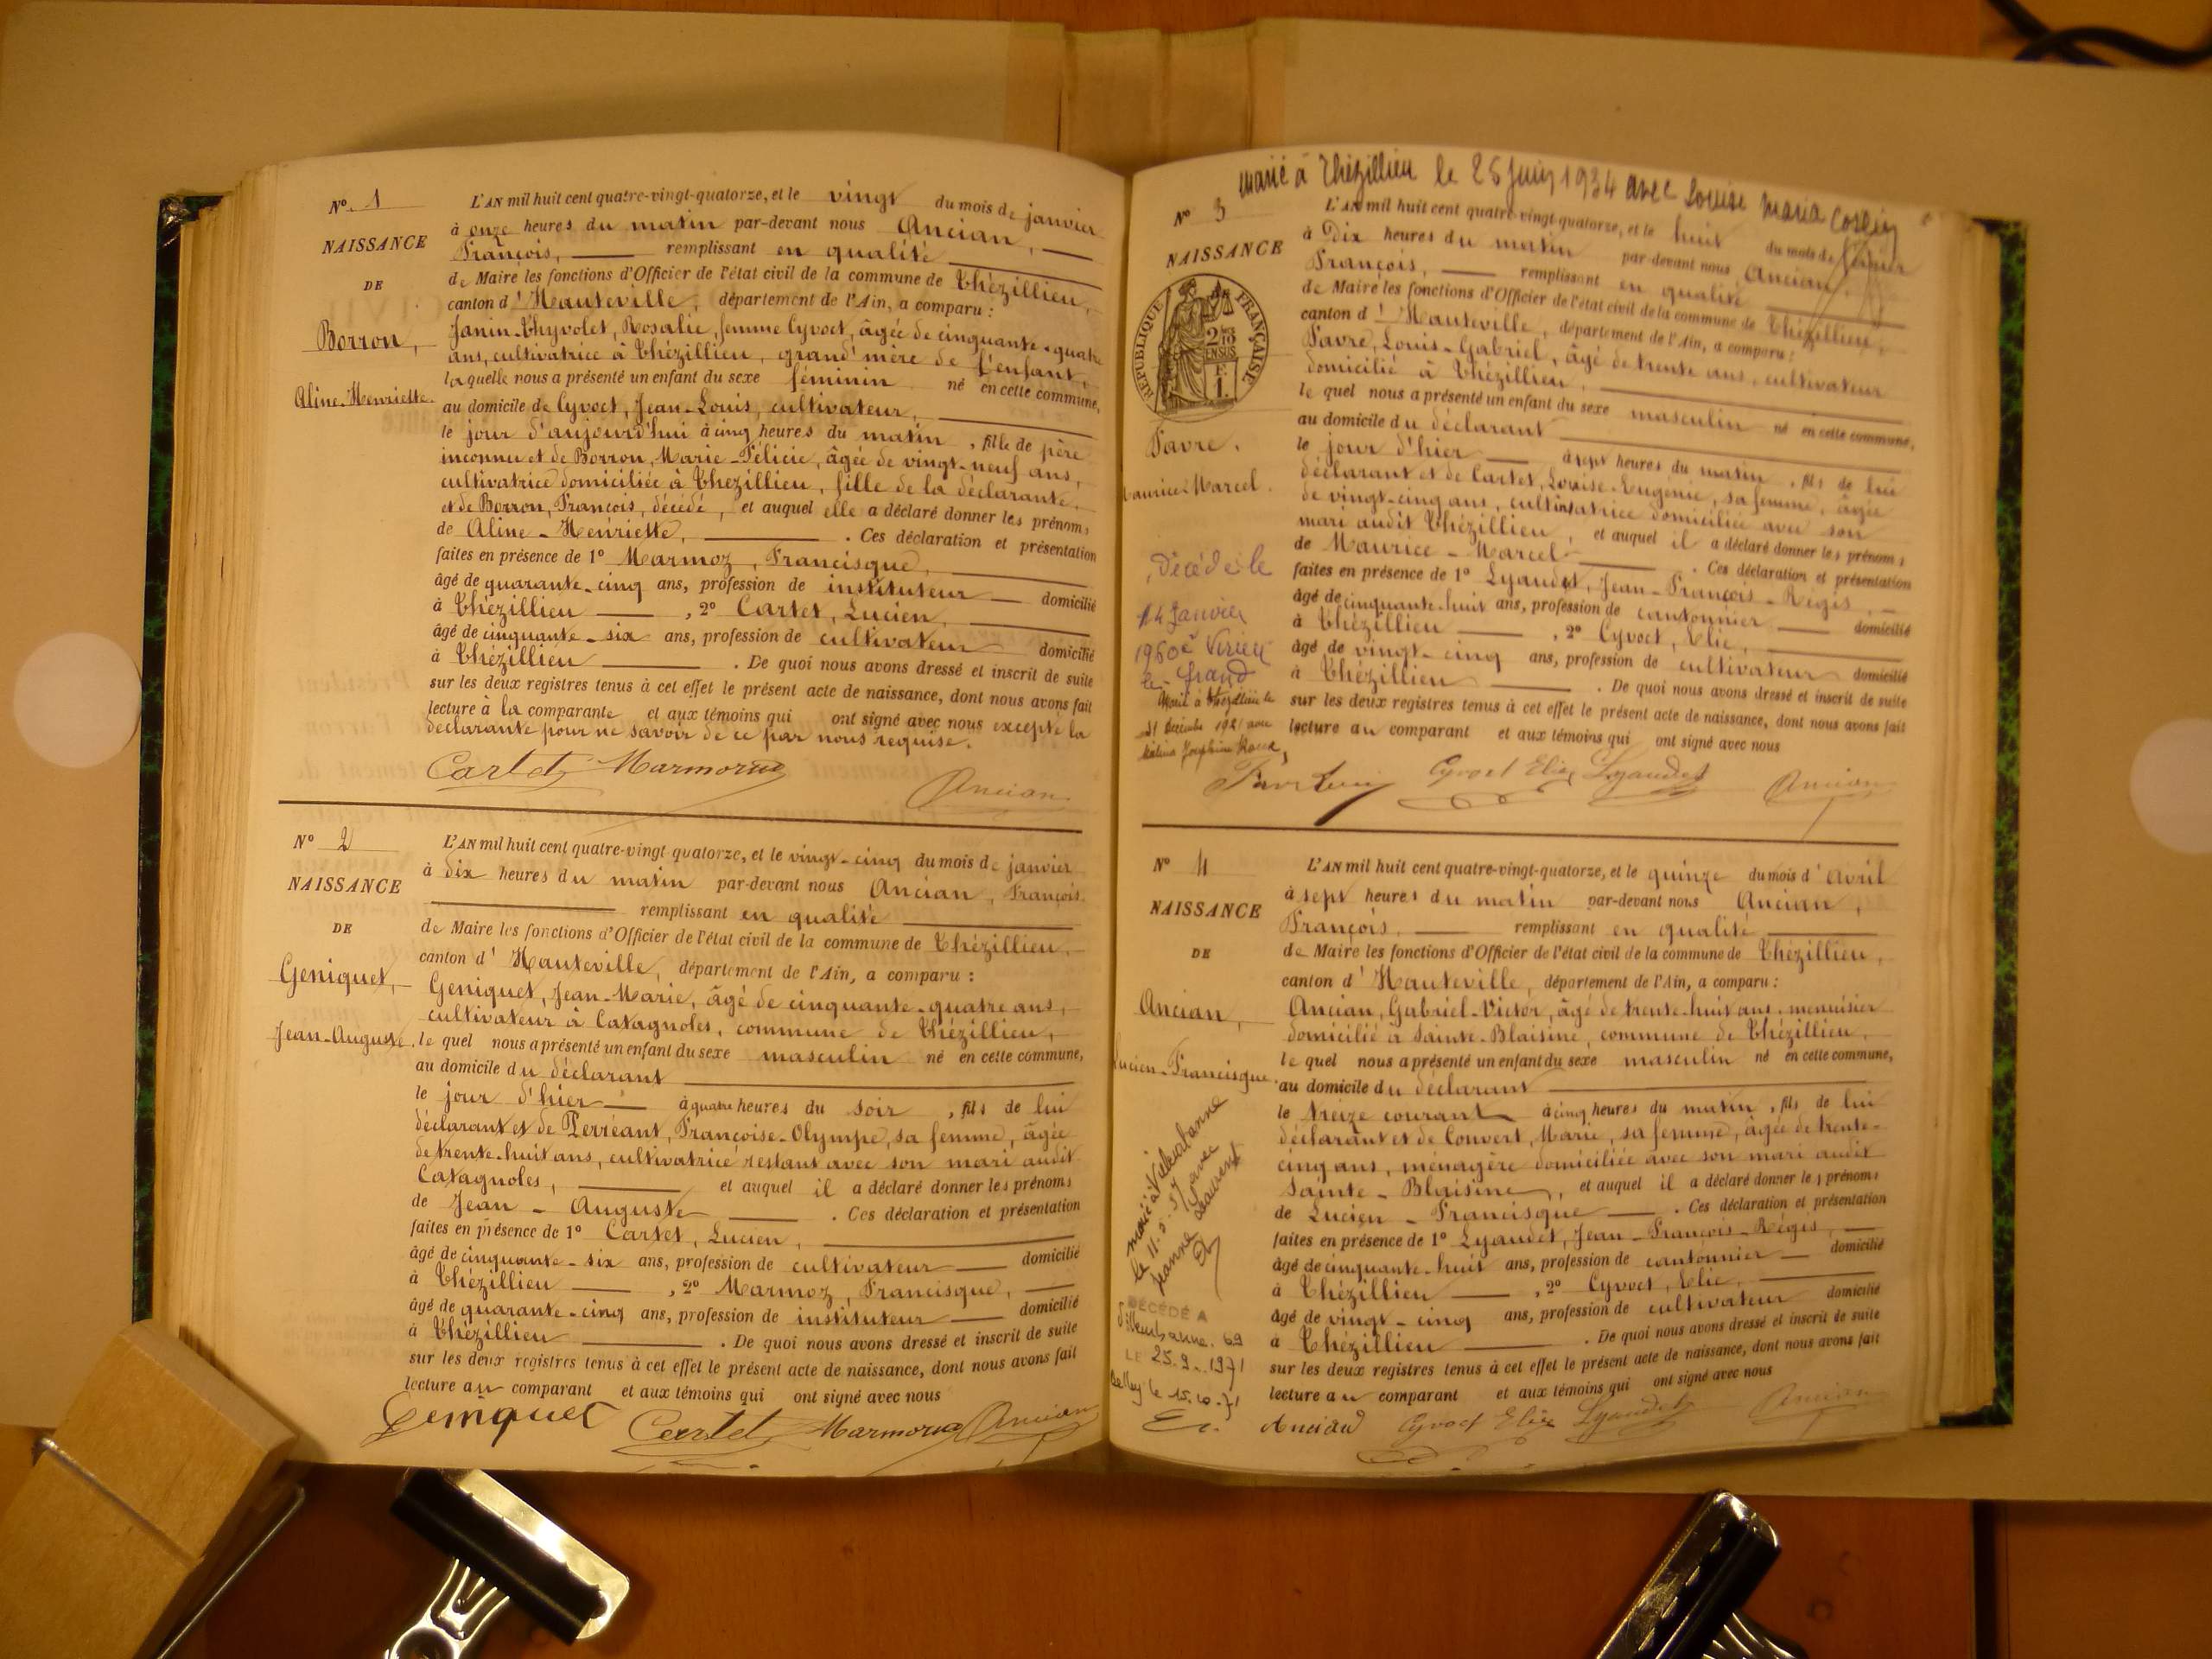 N° 1
NAISSANCE
DE
Borron,
Aline-Henriette.
L'AN mil huit cent quatre-vingt-quatorze, et le vingt du mois de janvier
à onze heures du matin par-devant nous Ancian,
François, remplissant en qualité
de Maire les fonctions d'Officier de l'état civil de la commune de Thézillieu,
canton d'Hauteville, département de l'Ain, a comparu :
Janin-Thyvolet, Rosalie, femme Cyvoct, âgée de cinquante-quatre
ans, cultivatrice à Thézillieu, grand'mère de l'enfant,
laquelle nous a présenté un enfant du sexe féminin né en cette commune,
au domicile de Cyvoct, Jean-Louis, cultivateur,
le jour d'aujourd'hui à cinq heures du matin, fille de père
inconnu et de Borron, Marie-Félicie, âgée de vingt-neuf ans,
cultivatrice domiciliée à Thézillieu, fille de la déclarante,
et de Borron, François, décédé, et auquel elle a déclaré donner les prénoms
de Aline-Henriette, . Ces déclaration et présentation
faites en présence de 1° Marmoz, Francisque,
âgé de quarante-cinq ans, profession de instituteur domicilié
à Thézillieu , 2° Cartet, Lucien,
âgé de cinquante-six ans, profession de cultivateur domicilié
à Thézillieu . De quoi nous avons dressé et inscrit de suite
sur les deux registres tenus à cet effet le présent acte de naissance, dont nous avons fait
lecture à la comparante et aux témoins qui ont signé avec nous excepté la
déclarante pour ne savoir de ce par nous requise.
Cartet Marmoz Ancian
N° 2
NAISSANCE
DE
Geniquet,
Jean-Auguste.
L'AN mil huit cent quatre-vingt-quatorze, et le vingt-cinq du mois de janvier
à dix heures du matin par-devant nous Ancian, François
remplissant en qualité
de Maire les fonctions d'Officier de l'état civil de la commune de Thézillieu,
canton d'Hauteville, département de l'Ain, a comparu :
Geniquet, Jean-Marie, âgé de cinquante-quatre ans,
cultivateur à Catagnoles, commune de Thézillieu,
lequel nous a présenté un enfant du sexe masculin né en cette commune,
au domicile du déclarant
le jour d'hier à quatre heures du soir, fils de lui
déclarant et de Perréant, Françoise-Olympe, sa femme, âgée
de trente-huit ans, cultivatrice restant avec son mari audit
Catagnoles, et auquel il a déclaré donner les prénoms
de Jean-Auguste . Ces déclaration et présentation
faites en présence de 1° Cartet, Lucien,
âgé de cinquante-six ans, profession de cultivateur domicilié
à Thézillieu , 2° Marmoz, Francisque,
âgé de quarante-cinq ans, profession de instituteur domicilié
à Thézillieu . De quoi nous avons dressé et inscrit de suite
sur les deux registres tenus à cet effet le présent acte de naissance, dont nous avons fait
lecture au comparant et aux témoins qui ont signé avec nous
Geniquet Cartet Marmoz Ancian
marié à Thézillieu le 25 Juin 1934 avec Louise Maria
N° 3
NAISSANCE
RÉPUBLIQUE FRANÇAISE
Favre,
Maurice-Marcel.
décédé le
14 Janvier
1960 à Virieu
le-Grand
Marié à Thézillieu le
31 décembre 1921 avec
Joséphine
L'AN mil huit cent quatre-vingt-quatorze, et le huit du mois de février
à dix heures du matin par-devant nous Ancian,
François, remplissant en qualité
de Maire les fonctions d'Officier de l'état civil de la commune de Thézillieu,
canton d'Hauteville, département de l'Ain, a comparu :
Favre, Louis-Gabriel, âgé de trente ans, cultivateur
domicilié à Thézillieu,
lequel nous a présenté un enfant du sexe masculin né en cette commune,
au domicile du déclarant
le jour d'hier à sept heures du matin, fils de lui
déclarant et de Cartet, Louise-Eugénie, sa femme, âgée
de vingt-cinq ans, cultivatrice domiciliée avec son
mari audit Thézillieu, et auquel il a déclaré donner les prénoms
de Maurice-Marcel . Ces déclaration et présentation
faites en présence de 1° Lyaudet, Jean-François-Régis,
âgé de cinquante-huit ans, profession de cantonnier domicilié
à Thézillieu , 2° Cyvoct, Elie,
âgé de vingt-cinq ans, profession de cultivateur domicilié
à Thézillieu . De quoi nous avons dressé et inscrit de suite
sur les deux registres tenus à cet effet le présent acte de naissance, dont nous avons fait
lecture au comparant et aux témoins qui ont signé avec nous
Cyvoct Elie Lyaudet Ancian
N° 4
NAISSANCE
DE
Ancian,
Lucien-Francisque.
marié à Villeurbanne
le 11.5.57 avec
Jeanne
DÉCÉDÉ A
Villeurbanne. 69
LE 25.9.1971
Belley le 15.10.71
L'AN mil huit cent quatre-vingt-quatorze, et le quinze du mois d'avril
à sept heures du matin par-devant nous Ancian,
François, remplissant en qualité
de Maire les fonctions d'Officier de l'état civil de la commune de Thézillieu,
canton d'Hauteville, département de l'Ain, a comparu :
Ancian, Gabriel-Victor, âgé de trente-huit ans, menuisier
domicilié à Sainte-Blaisine, commune de Thézillieu,
lequel nous a présenté un enfant du sexe masculin né en cette commune,
au domicile du déclarant
le treize courant à cinq heures du matin, fils de lui
déclarant et de Convert, Marie, sa femme, âgée de trente-
cinq ans, ménagère domiciliée avec son mari audit
Sainte-Blaisine, et auquel il a déclaré donner les prénoms
de Lucien-Francisque . Ces déclaration et présentation
faites en présence de 1° Lyaudet, Jean-François-Régis,
âgé de cinquante-huit ans, profession de cantonnier domicilié
à Thézillieu , 2° Cyvoct, Elie,
âgé de vingt-cinq ans, profession de cultivateur domicilié
à Thézillieu . De quoi nous avons dressé et inscrit de suite
sur les deux registres tenus à cet effet le présent acte de naissance, dont nous avons fait
lecture au comparant et aux témoins qui ont signé avec nous
Ancian Cyvoct Elie Lyaudet Ancian